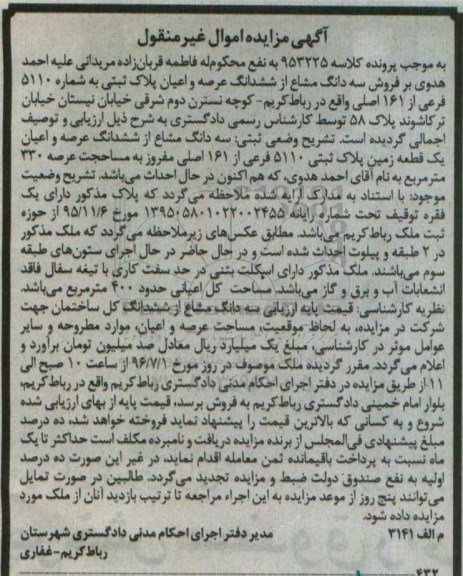 آگهی مزایده اموال غیر منقول
به موجب پرونده کلاسه ۹۵۳۲۲۵ به نفع محکوم‌له فاطمه قربان‌زاده مریدانی علیه احمد
هدوی بر فروش سه دانگ مشاع از ششدانگ عرصه و اعیان پلاک ثبتی به شماره ۵۱۱۰
فرعی از ۱۶۱ اصلی واقع در رباط‌کریم- کوچه نسترن دوم شرقی خیابان نیستان خیابان
ترکاشوند پلاک ۵۸ توسط کارشناس رسمی دادگستری به شرح ذیل ارزیابی و توصیف
اجمالی گردیده است. تشریح وضعی ثبتی: سه دانگ مشاع از ششدانگ عرصه و اعیان
یک قطعه زمین پلاک ثبتی ۵۱۱۰ فرعی از ۱۶۱ اصلی مفروز به مساحجت عرصه ۲۳۰
مترمربع به نام آقای احمد هدوی، که هم اکنون در حال احداث می‌باشد. تشریح وضعیت
موجود: با استناد به مدارک ارایه شده ملاحظه می‌گردد که پلاک مذکور دارای یک
فقره توقیف تحت شماره رایانه ۱۳۹۵۰۵۸۰۱۰۲۲۰۰۲۴۵۵ مورخ ۹۵/۱۱/۶ از حوزه
ثبت ملک رباط‌کریم می‌باشد. مطابق عکس‌های زیرملاحظه می‌گردد که ملک مذکور
در ۲ طبقه و پیلوت احداث شده است و در حال حاضر در حال اجرای ستون‌های طبقه
سوم می‌باشند. ملک مذکور دارای اسکلت بتنی در حد سفت کاری با تیغه سفال فاقد
انشعابات آب و برق و گاز می‌باشد. مساحت کل اعیانی حدود ۴۰۰ مترمربع می‌باشد.
نظریه کارشناسی: قیمت پایه ارزیابی سه دانگ مشاع از ششدانگ کل ساختمان جهت
شرکت در مزایده، به لحاظ موقعیت، مساحت عرصه و اعیان، موارد مطروحه و سایر
عوامل موثر در کارشناسی، مبلغ یک میلیارد ریال معادل صد میلیون تومان برآورد و
اعلام می‌گردد. مقرر گردیده ملک موصوف در روز مورخ ۹۶/۷/۱ از ساعت ۱۰ صبح الی
۱۱ از طریق مزایده در دفتر اجرای احکام مدنی دادگستری رباط‌کریم واقع در رباط‌کریم،
بلوار امام خمینی دادگستری رباط‌کریم به فروش برسد، قیمت پایه از بهای ارزیابی شده
شروع و به کسانی که بالاترین قیمت را پیشنهاد نماید فروخته خواهد شد، ده درصد
مبلغ پیشنهادی فی‌المجلس از برنده مزایده دریافت و نامبرده مکلف است حداکثر تا یک
ماه نسبت به پرداخت باقیمانده ثمن معامله اقدام نماید، در غیر این صورت ده درصد
اولیه به نفع صندوق دولت ضبط و مزایده تجدید می‌گردد. طالبین در صورت تمایل
می‌توانند پنج روز از موعد مزایده به این اجراء مراجعه تا ترتیب بازدید آنان از ملک مورد
مزایده داده شود.
م الف ۳۱۴۱ مدیر دفتر اجرای احکام مدنی دادگستری شهرستان
رباط‌کریم-غفاری
۴۳۲